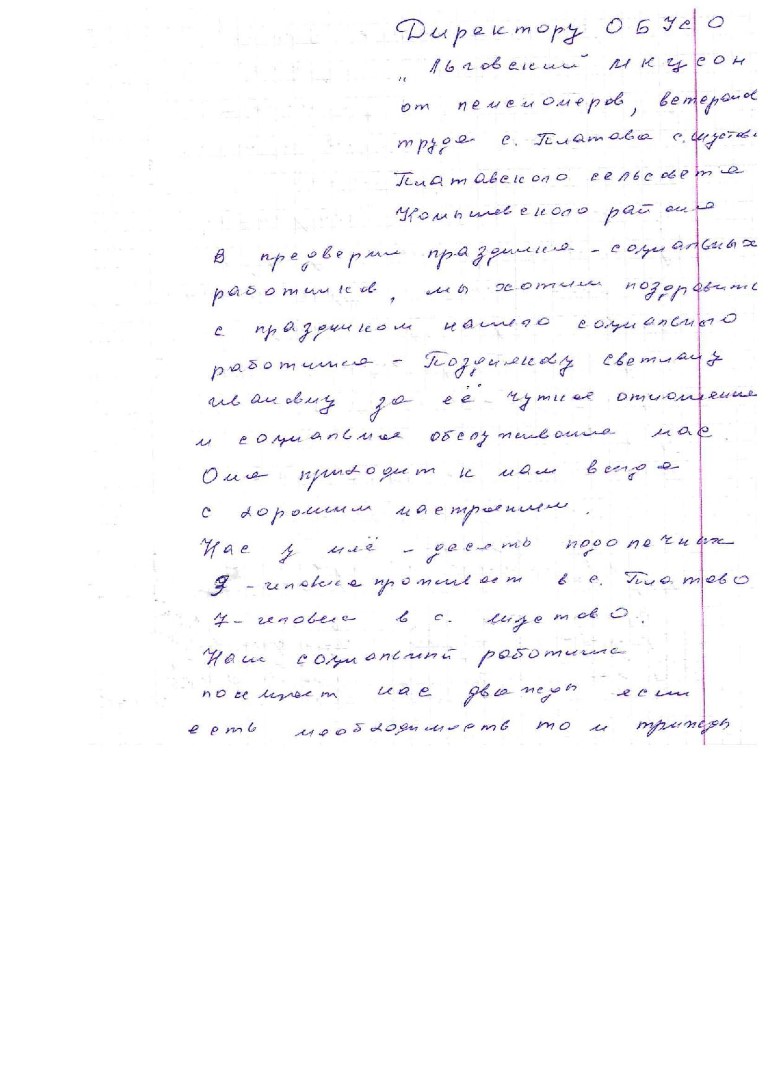 Директору ОБУСО
„Льговский МКЦСОН
от пенсионеров, ветеранов
труда с. Платава с. Шустово
Платавского сельсовета
Конышевского района
В предверии праздника - социальных
работников, мы хотим поздравить
с праздником нашего социального
работника - Позднякову Светлану
Ивановну за её чуткое отношение
и социальное обслуживание нас
Она приходит к нам всегда
с хорошим настроением.
Нас у неё - десять подопечных
3 - человека проживает в с. Платаво
7 - человек в с. Шустово.
Наш социальный работник
посещает нас дважды если
есть необходимость то и трижды